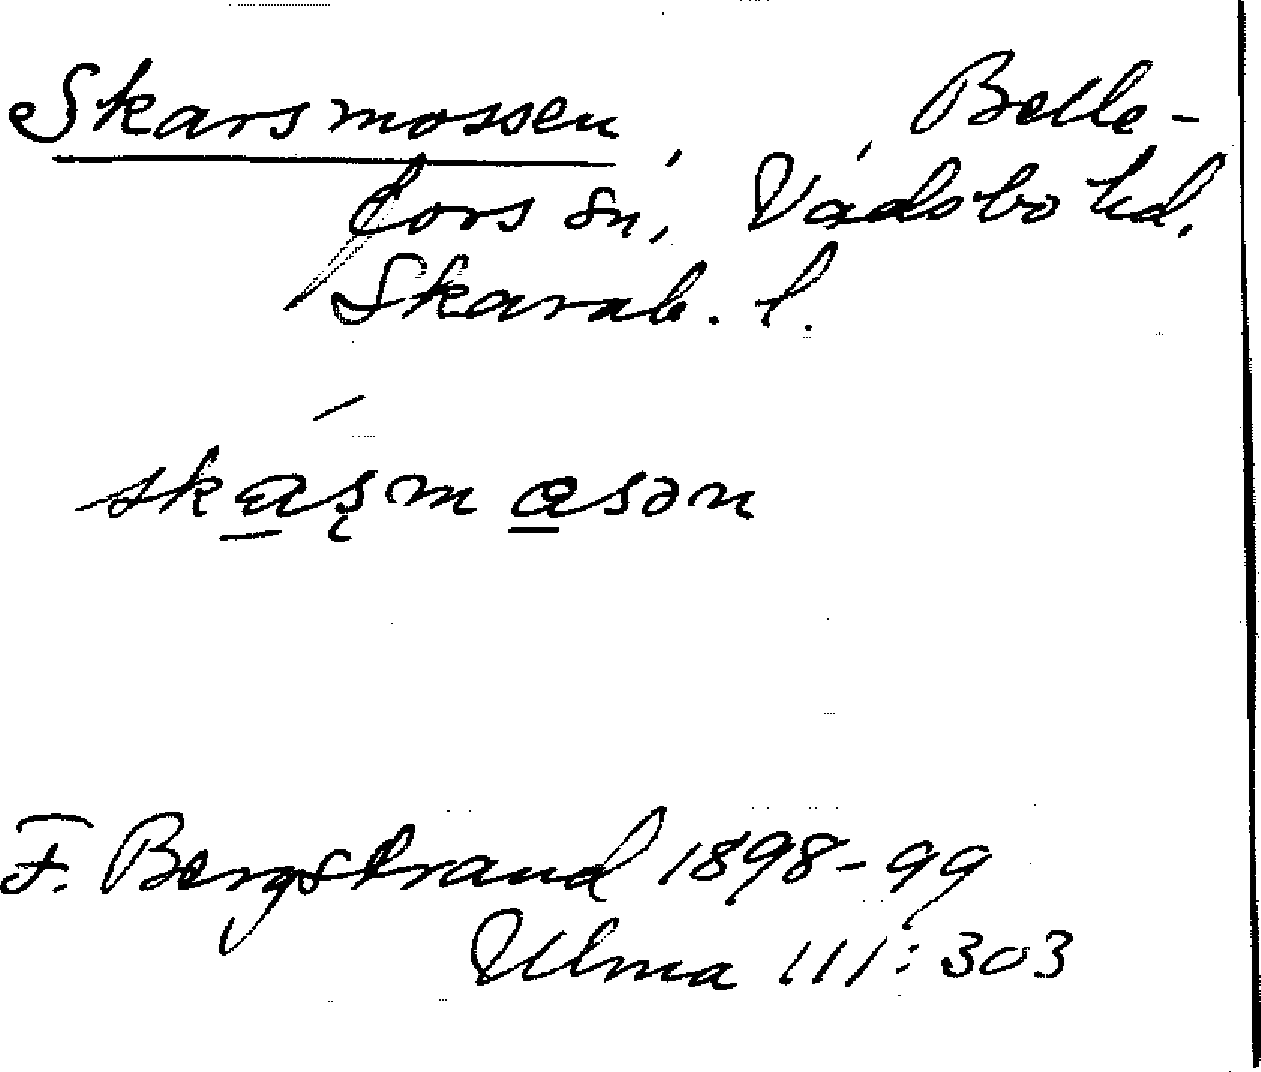 Skarsmossen, Belle-
fors sn, Vadsbo hd.
Skarab. l.
ska̲s̨m a̲sən
F. Bergstrand 1898-99
Ulma 111:303